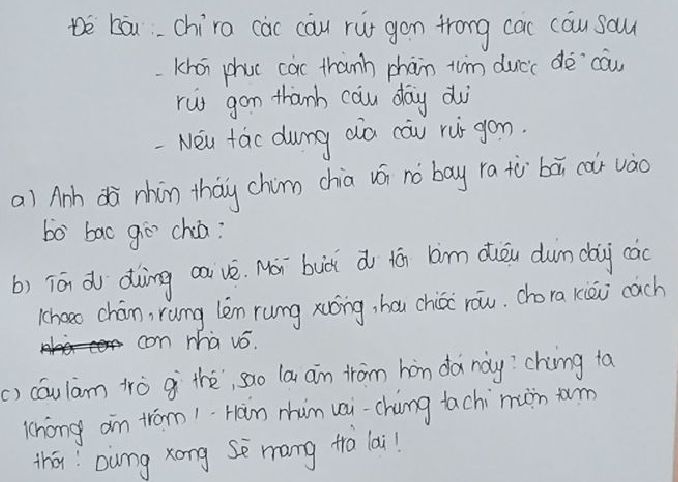 Đề bài: - chỉ ra các câu rút gọn trong các câu sau
- Khôi phục các thành phần tìm được để câu
rút gọn thành câu đầy đủ
- Nêu tác dụng của câu rút gọn.
a) Anh đã nhìn thấy chim chìa vôi nó bay ra từ bãi cát vào
bờ bao giờ chưa?
b) Tôi đi đứng oai vệ. Mỗi bước đi tôi làm điệu dún dẩy các
khoeo chân, rung lên rung xuống, hai chiếc râu. cho ra kiểu cách
con nhà võ.
c) cậu làm trò gì thế, sao lại ăn trộm hòn đá này? chúng ta
không ăn trộm! - Hàn nhún vai - chúng ta chỉ mượn tạm
thôi! Dùng xong sẽ mang trả lại!